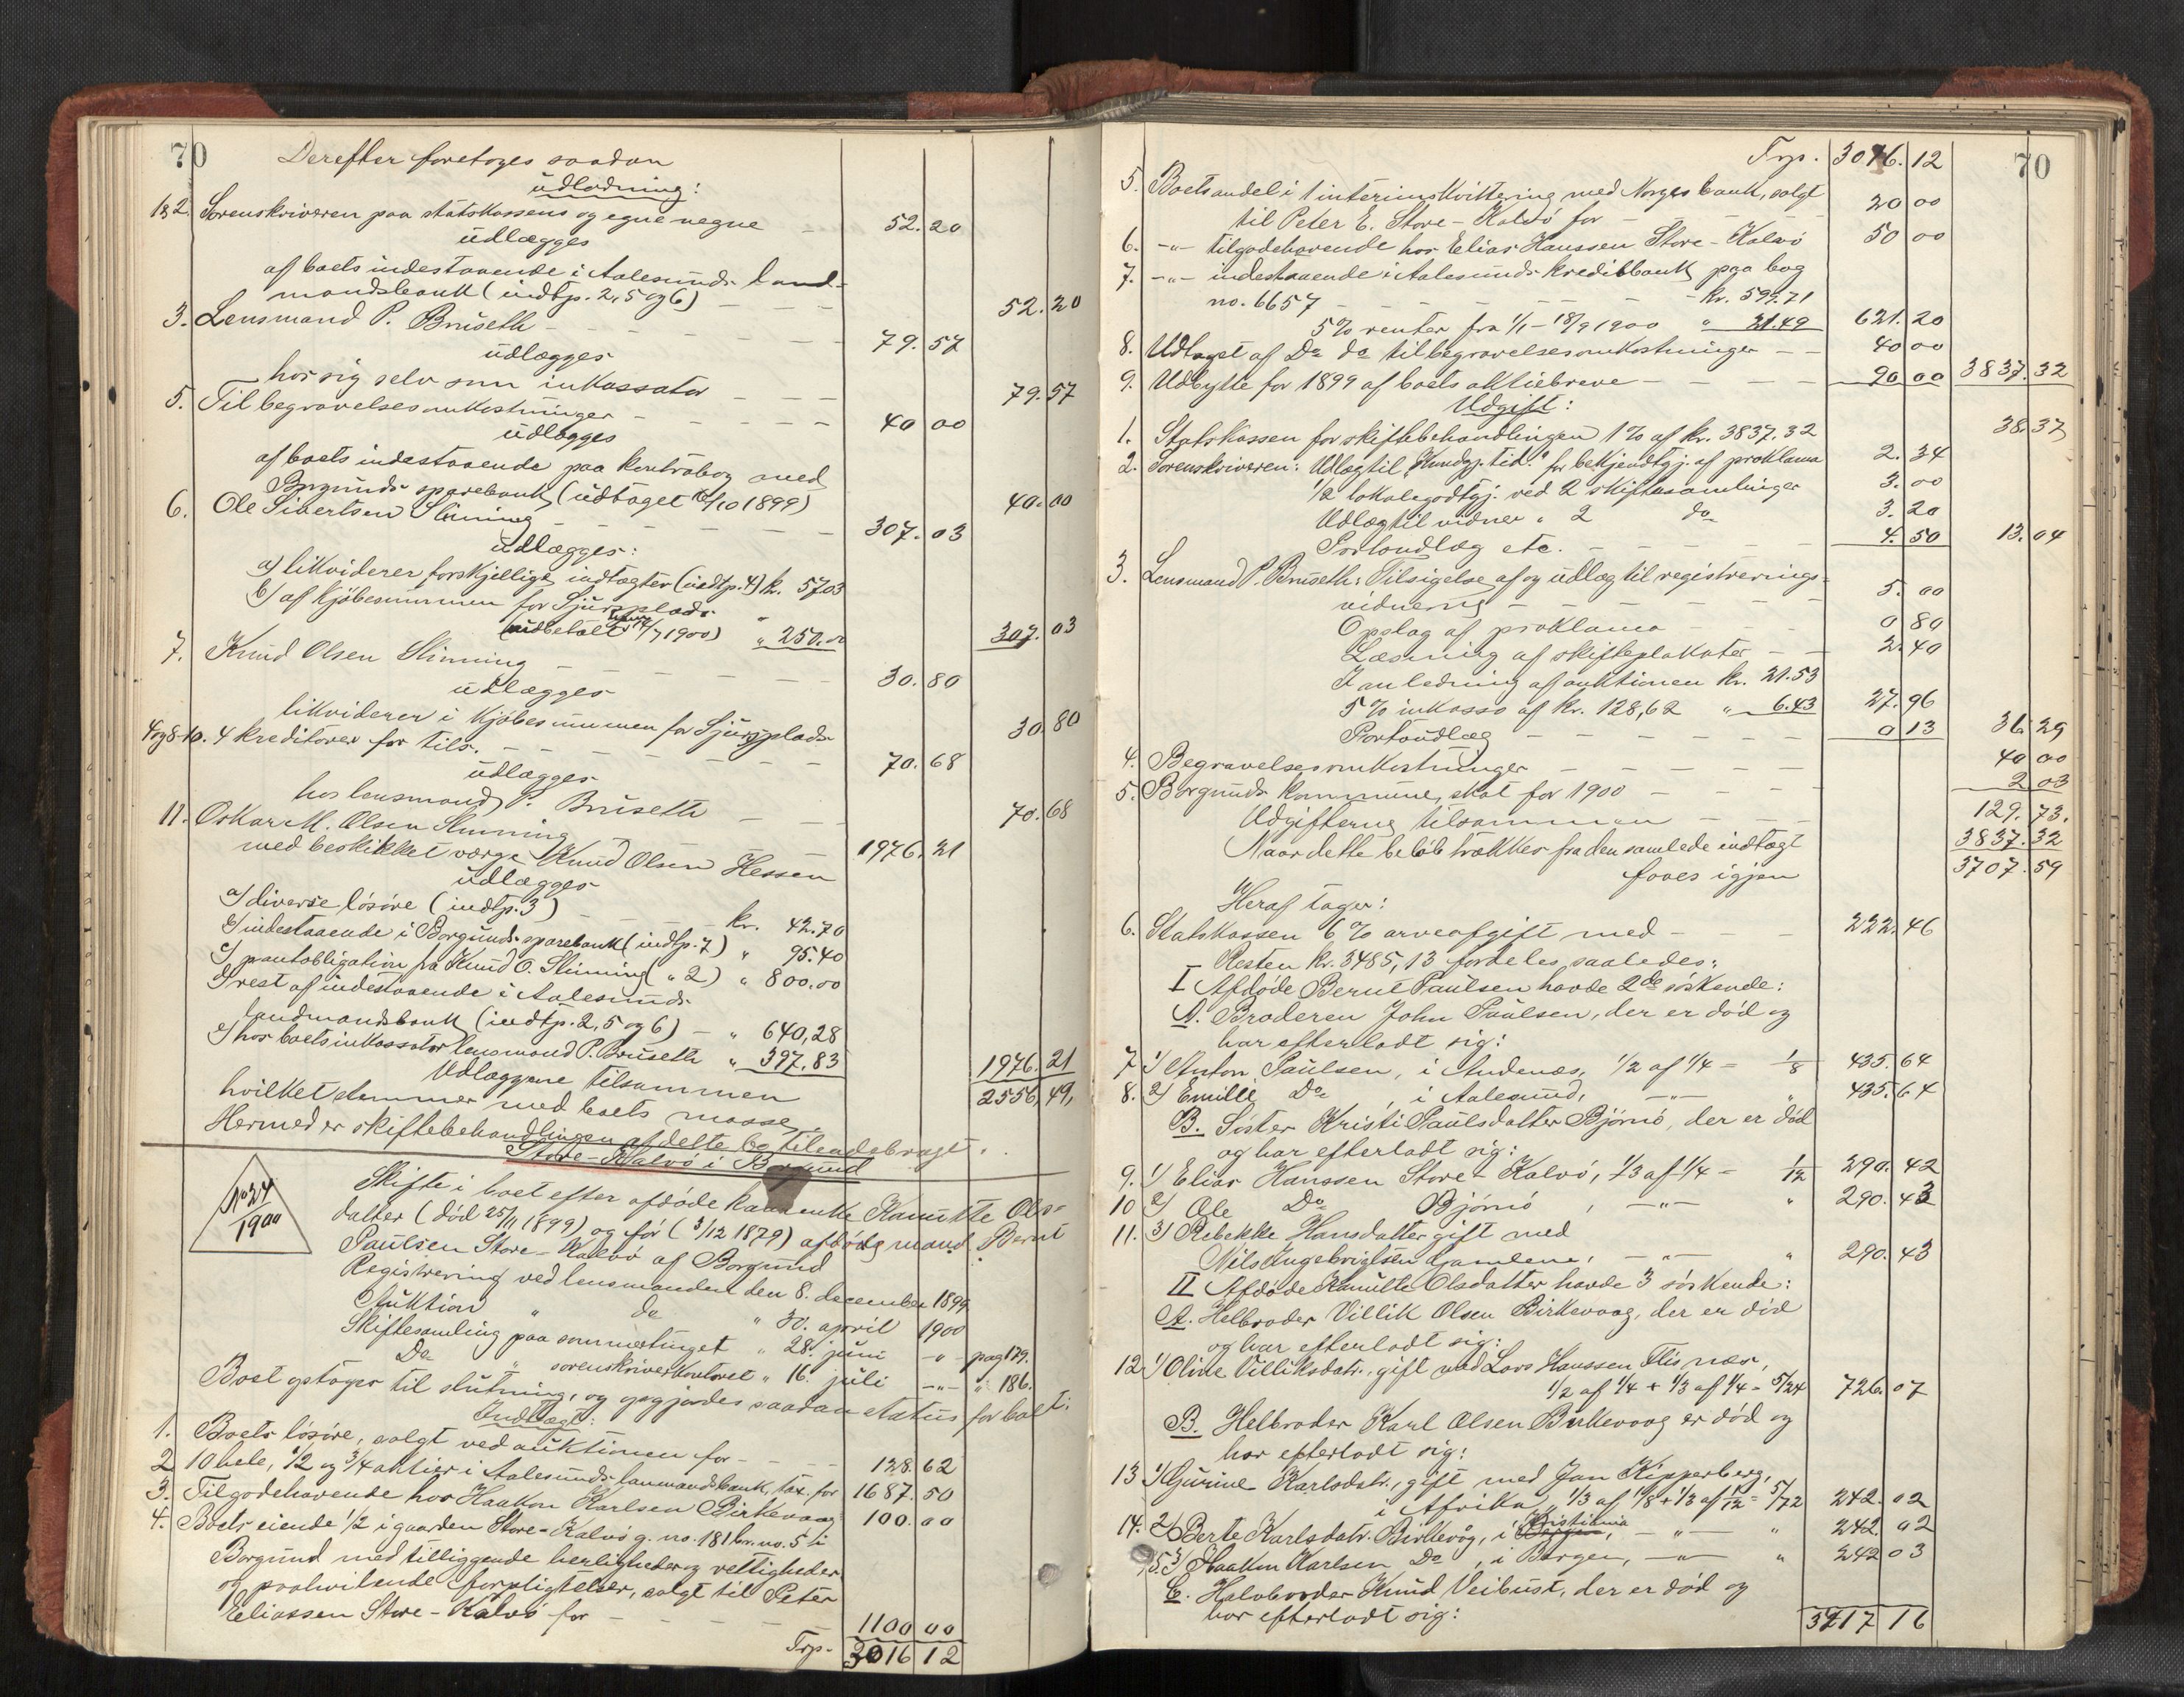 70
Derefter foretages saadan
udlodning:
1&2. Sorenskriveren paa statskassens og egne vegne 52.20
udlægges
af boets indestaaende i Aalesunds land-
mandsbank (indtp. 2, 5 og 6) 52.20
3. Lensmand P. Bruseth 79.57
udlægges
hos sig selv som inkassator 79.57
5. Til begravelsesomkostninger 40 00
udlægges
af boets indestaaende paa kontrabog med
Borgunds sparebank (udtaget 16/10 1899) 40.00
6. Ole Sivertsen Slinning 307.03
udlægges:
a) likviderer forskjellige indtægter (indtp. 4) kr. 57.03
b) af kjøbesummen for Sjursplads
(udbetalt 14/7 1900) " 250.00 307.03
7. Knud Olsen Slinning 30.80
udlægges
likviderer i kjøbesummen for Sjursplads 30.80
4 og 8-10. 4 kreditorer for tils. 70.68
udlægges
hos lensmand P. Bruseth 70.68
11. Oskar M. Olsen Slinning
med beskikket værge Knud Olsen Hessen 1976.21
udlægges
a) diverse løsøre (indtp. 3) kr. 42.70
b) indestaaende i Borgunds sparebank (indtp. 7) " 95.40
c) pantobligation fra Knud O. Slinning ( " 2) " 800.00
d) rest af indestaaende i Aalesunds
landmandsbank (indtp. 2, 5 og 6) - " 640,28
e) hos boets inkassator lensmand P. Bruseth " 397.83 1976.21
Udlæggene tilsammen 2556,49,
hvilket stemmer med boets masse.
Hermed er skiftebehandlingen af dette bo tilendebragt.
Store-Kalvø i Borgund
No 24
1900
Skifte i boet efter afdøde kaarenke Hanukke Ols-
datter (død 25/11 1899) og før (3/12 1879) afdøde mand Bernt
Paulsen Store-Kalvø af Borgund.
Registrering ved lensmanden den 8. december 1899
Auktion " do " 30. april 1900
Skiftesamling paa sommertinget " 28. juni -"- pag 179.
Do " sorenskriverkontoret " 16. juli -"- " 186.
Boet optoges til slutning, og opgjordes saadan status for boet:
Indtægt:
1. Boets løsøre, solgt ved auktionen for 128.62
2 10 hele, 1/2 og 3/4 aktier i Aalesunds lanmandsbank, tax. for 1687.50
3. Tilgodehavende hos Haakon Karlsen Birkevaag 100.00
4. Boets eiende 1/2 i gaarden Store-Kalvø g. no. 181 br. no. 5 i
Borgund med tilliggende herligheder og rettigheder
og paahvilende forpligtelser, solgt til Peter
Eliassen Store-Kalvø for 1100 00
Trp. 3016 12
Trp. 3016.12 70
5. Boets andel i 1 interimskvittering med Norges bank, solgt
til Peter E. Store-Kalvø for 20 00
6. -"- tilgodehavende hos Elias Hanssen Store-Kalvø 50 00
7. -"- indestaaende i Aalesunds kreditbank paa bog
no. 6657 - kr. 599.71
5% renter fra 1/1 - 18/9 1900 " 21.49 621.20
8. Udtaget af Do do til begravelsesomkostninger 40 00
9. Udbytte for 1899 af boets aktiebreve 90 00 3837.32
Udgift:
1. Statskassen for skiftebehandlingen 1% af kr. 3837.32 38.37
2. Sorenskriveren: Udlæg til "Kundgj. tid." for bekjendtgj. af proklama 2.34
1/2 lokalegodtgj. ved 2 skiftesamlinger 3.00
Udlæg til vidner " 2 do 3.20
Portoudlæg etc. 4.50 13.04
3. Lensmand P. Bruseth: Tilsigelse af og udlæg til registrerings-
vidnerne 5.00
Opslag af proklama 0 80
Læsning af skifteplakater 2.40
I anledning af auktionen kr. 21.53
5% inkasso af kr. 128,62 " 6.43 27.96
Portoudlæg 0 13 36.29
4. Begravelsesomkostninger 40 00
5. Borgunds kommune, skat for 1900 2 03
Udgifterne tilsammen 129.73.
Naar dette beløb trækkes fra den samlede indtægt 3837.32
faaes igjen 3707.59
Heraf tager:
6. Statskassen 6% arveafgift med 222.46
Resten kr. 3485,13 fordeles saaledes:
I Afdøde Bernt Paulsen havde 2de søskende:
A. Broderen John Paulsen, der er død og
har efterladt sig:
7 1) Anton Paulsen, i Andenæs, 1/2 af 1/4 = 1/8 435.64
8. 2) Emilie Do , i Aalesund, -"- " 435.64
B. Søster Kristi Paulsdatter Bjørnø, der er død
og har efterladt sig:
9. 1) Elias Hanssen Store-Kalvø, 1/3 af 1/4 = 1/12 290.42
10 2) Ole Do Bjørnø , -"- " 290.43
11. 3) Rebekke Hansdatter gift med
Nils Ingebrigtsen Gamlem, -"- " 290.43
II Afdøde Hanukke Olsdatter havde 3 søskende:
A. Helbroder Villik Olsen Birkevaag, der er død
og har efterladt sig:
12 1) Oline Villiksdatr., gift med Lars Hanssen Flisnæs,
1/2 af 1/4 + 1/3 af 1/4 = 5/24 726.07
B. Helbroder Karl Olsen Birkevaag er død og
har efterladt sig:
13 1) Gurine Karlsdatr., gift med Jan Kipperberg,
i Afrika, 1/3 af 1/8 + 1/3 af 1/12 = 5/72 242.02
14. 2) Berte Karlsdatr. Birkevåg, i Kristiania, -"- " 242.02
15. 3) Haakon Karlsen Do , i Bergen, -"- " 242 03
C. Halvbroder Knud Veibust, der er død og
har efterladt sig:
3417 16